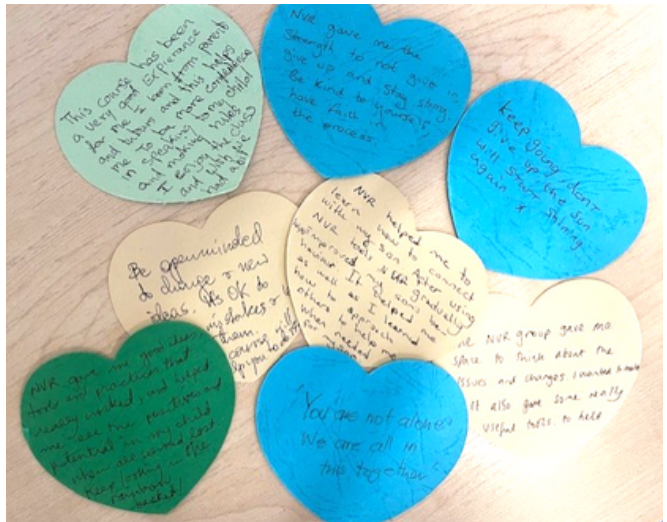 This course has been
a very good Expierance
for me I learn from parents
and tutors and this helps
me to be more confidence
in speaking to my child
and making rules
I enjoy the class
and Wish there
NVR gave me the
strength to not give in,
give up and stay strong.
Be kind to yourself,
have faith in
the process.
keep going, don't
give up the sun
will start shining
again x
Be openminded
to change & new
ideas. It's OK to
mistakes &
them.
NVR helped me to
learn how to connect
with my son After using
NVR tools NVR gradually
improved my son's be-
haviour. It helped me
as well as I learned
how to approach
others to help me
when needed
for
NVR group gave me
space to think about the
issues and changes. I wanted to make
It also gave some really
useful tools. to help
NVR gave me good ideas,
tools and practices that
really worked, and helped
me see the positives and
potential in my child
when all seemed lost
Keep looking in the
rainbow
basket!
"You are not alone"
We are all in
this together